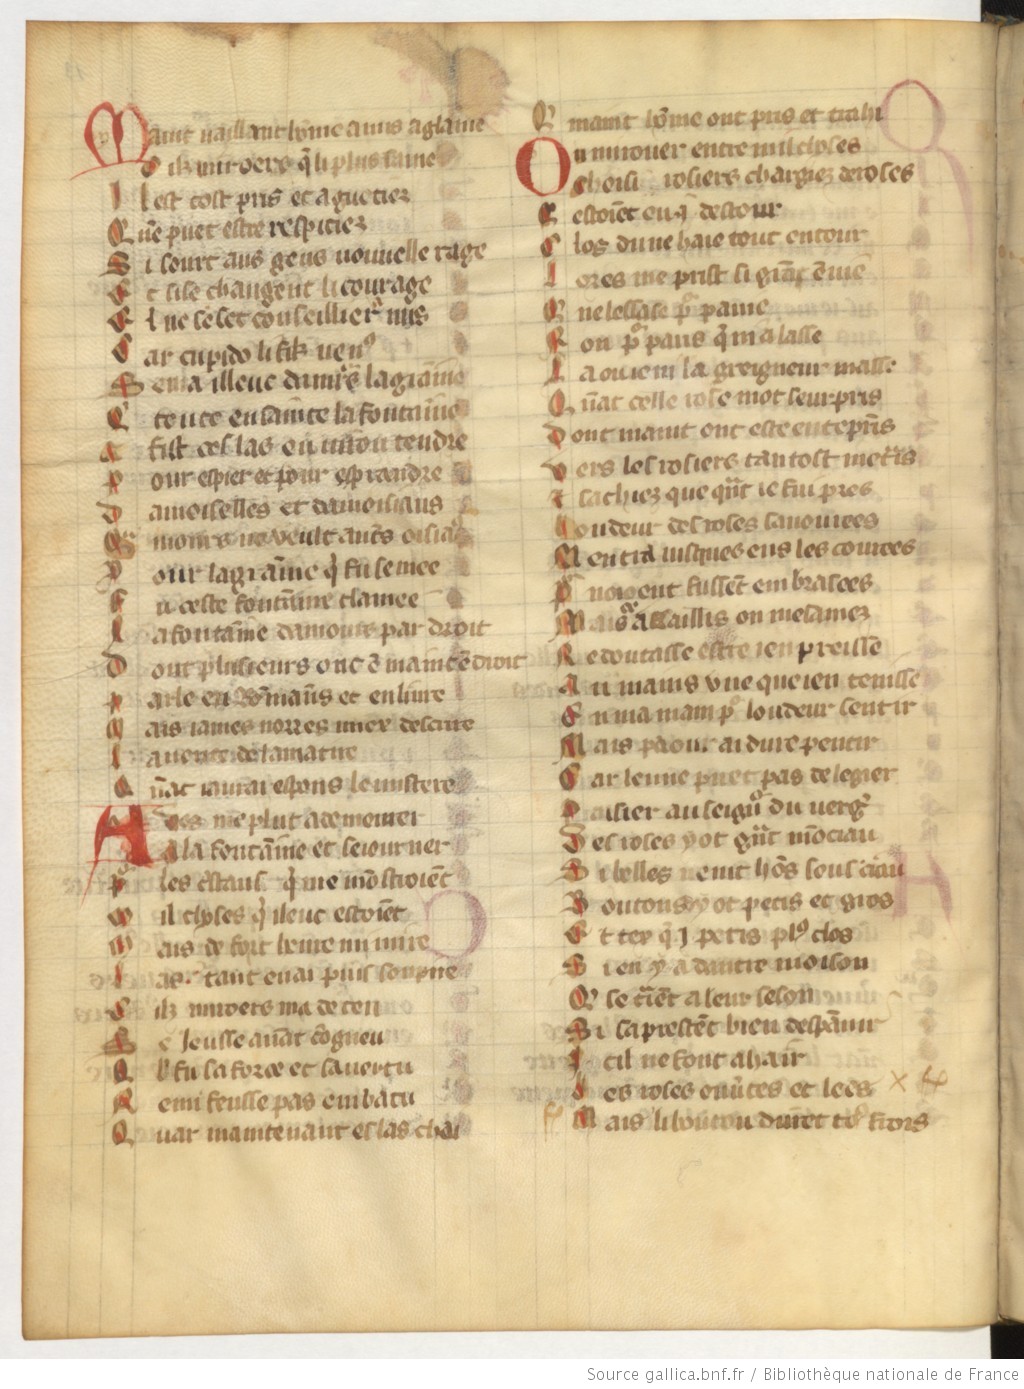 Maint vaillant home a mis a glaive
Cilz miroers q̃ li plus saive
I l est tost pris et aguetiez
Q ue puet estre respitiez
S i sourt aus gens nouvelle rage
E t si se changent li courage
E l ne se set conseillier nus
C ar cupido li filz venus
S ema illeuc damrs la graine
Q toute en sainte la fontaine
E fist ces las environ tendre
P our espier et pour esprendre
D amoiselles et damoisiaus
Q amours ne veult autres oisiaus
P our la graine q̃ fu semee
F u ceste fontaine clamee
L a fontaine damours par droit
D ont plusieurs ont en maint endroit
P arle en Romans et en livre
M ais iames norres miex descrire
L a verite de la matire
Q uãt iaurai espons le mistere
Ades me plut a demourer
A la fontaine et seiourner
P les cristaus q̃ me mõstroiẽt
M il choses q̃ ileuc estoiẽt
M ais de fort heure mi mire
L as tant en ai puis souspire
C ilz miroers ma deceu
S e ieusse auãt cõgneu
Q l fu sa force et sa vertu
N e mi feusse pas embatu
Q uar maintenant es las chai
Q maint home ont pris et trahi
Ou mirouer entre mil choses
Choisi rosiers chargiez de roses
Q estoiẽt en .i. destour
C los dune haie tout entour
L ores me prist si grant envie
Q ne lessasse pr pavie
N on pr paris q̃ ni alasse
L a ou ie vi la greigneur masse
Q uãt celle rose mot seurpris
D ont maint ont este entepris
V ers les rosiers tantost me tres
E t sachiez que quãt ie fui pres
L oudeur des roses savourees
M entra iusques ens les courees
P noient fussẽt embrasees
M ais sassaillis ou mesamez
N e doutasse estre ien preisse
A u mains une que ien tenisse
E n ma main pr loudeur sentir
M ais paour ai du repentir
C ar leune puet pas de legier
P aisier au seignr du vergr
D es roses y ot grãt mõciau
S i belles ne vit hõs sous ciau
B outons y ot petis et gros
E t tex q̃ .i. petis plus clos
S i en y a dautre moison
Q se tiẽt a leur seson
S i saprestẽt bien despanir
E cil ne font a hair
L es roses ouvtes et lees
M ais li bouton durẽt to fros
Source gallica.bnf.fr / Bibliothèque nationale de France